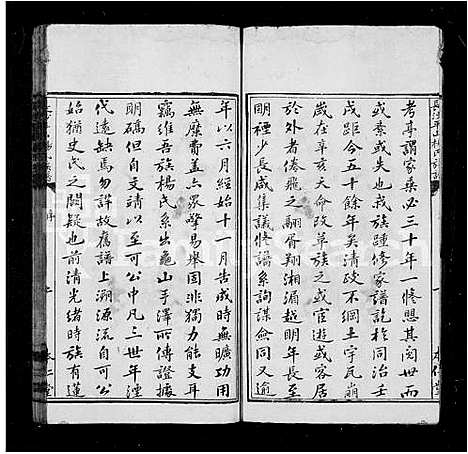 考亭謂家集必三十年一修懸其閥世而
或素或失也我族踵修家譜訖於同治壬
戌屈今五十餘年矣清政不綱土宇瓦崩
歲在辛亥天命改革族之或官遊或容居
於外者倦飛之翮胥翔湘湄越明年長房
明禋少長咸集議修譜系詢謀僉同又逾
年以六月經始十一月告成時無曠功用
無靡費蓋亦眾擎易舉固非獨力能支耳
竊維吾族楊氏系出龜山手澤所傳證據
明碻但自文靖以至中凡三世年湮
代遠缺焉勿詳故舊譜上溯源流自可公
始猶史氏之闕疑也前清光緒時族有蓮
序
本仁堂
本仁堂